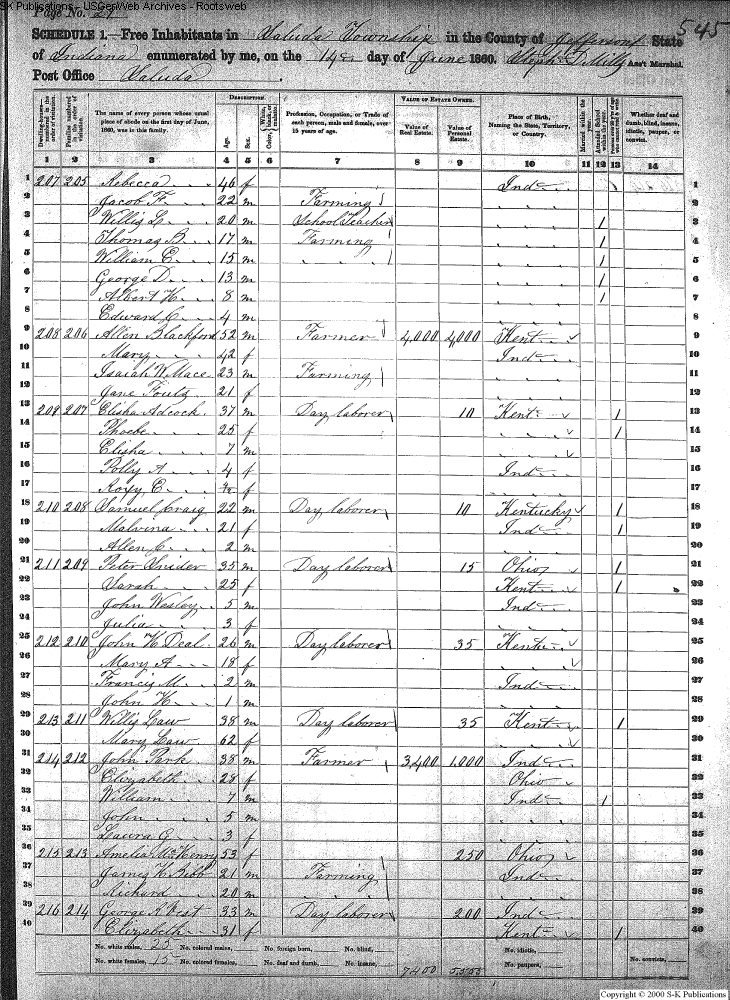 SK Publications - USGenWeb Archives - Rootsweb
Page No. 27
545
SCHEDULE 1.—Free Inhabitants in Saluda Township in the County of Jefferson State
of Indiana enumerated by me, on the 14th day of June 1860. Ass't Marshal.
Post Office Saluda
DESCRIPTION. VALUE OF ESTATE OWNED.
Dwelling-houses—numbered in the order of visitation. Families numbered in the order of visitation. The name of every person whose usual place of abode on the first day of June, 1860, was in this family. Age. Sex. Color, White, black, or mulatto. Profession, Occupation, or Trade of each person, male and female, over 15 years of age. Value of Real Estate. Value of Personal Estate. Place of Birth, Naming the State, Territory, or Country. Married within the year. Attended School within the year. Whether deaf and dumb, blind, insane, idiotic, pauper, or convict.
1 2 3 4 5 6 7 8 9 10 11 12 13 14
1 207 205 Rebecca 46 f Ind 1
2 Jacob F. 22 m Farming " 2
3 Willis L. 20 m School Teacher " 1 3
4 Thomas B. 17 m Farming " 1 4
5 William E. 15 m " " 1 5
6 George D. 13 m " 1 6
7 Albert H. 8 m " 1 7
8 Edward C. 4 m " 8
9 208 206 Allen Blackford 52 m Farmer 4,000 4,000 Kent 9
10 Mary 42 f Ind 10
11 Isaiah W. Mace 23 m Farming " 11
12 Jane Foutz 21 f " 12
13 209 207 Elisha Adcock 37 m Day laborer 10 Kent 1 13
14 Phoebe 25 f " 1 14
15 Elisha 7 m " 15
16 Polly A. 4 f Ind 16
17 E. f " 17
18 210 208 Samuel Craig 22 m Day laborer 10 Kentucky 1 18
19 Malvina 21 f Ind 1 19
20 Allen C. 2 m " 20
21 211 209 Peter Snider 35 m Day laborer 15 Ohio 1 21
22 Sarah 25 f Kent 1 22
23 John Wesley 5 m Ind 23
24 Julia 3 f " 24
25 212 210 John H. Deal 26 m Day laborer 35 Kent 25
26 Mary A 18 f " 26
27 Francis M. 2 m Ind 27
28 John H. 1 m " 28
29 213 211 Willis Law 38 m Day laborer 35 Kent 1 29
30 Mary Law 62 f " 30
31 214 212 John Park 38 m Farmer 3,400 1,000 Ind 31
32 Elizabeth 28 f Ohio 32
33 William 7 m Ind 1 33
34 John 5 m " 34
35 Laura E. 3 f " 35
36 215 213 Amelia McHenry 53 f 250 Ohio 36
37 James H. Bibb 21 m Farming Ind 37
38 Richard 20 m " " 38
39 216 214 George A. West 33 m Day laborer 200 Ind 39
40 Elizabeth 31 f Kent 1 40
No. white males, 25 No. colored males, No. foreign born, No. blind, No. idiotic,
No. white females, 15 No. colored females, No. deaf and dumb, No. insane, 7400 5555 No. paupers, No. convicts,
Copyright © 2000 S-K Publications